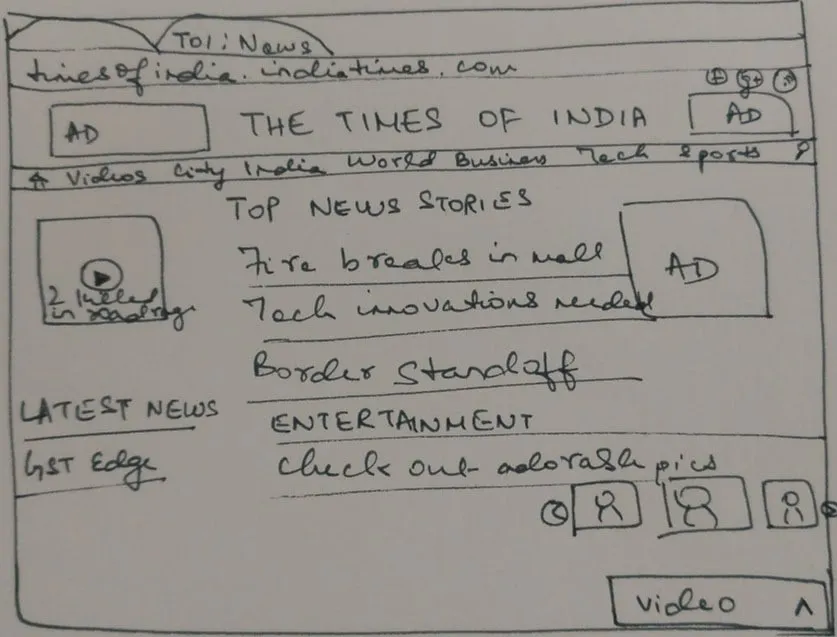 TOI: News
timesofindia.indiatimes.com
f g+
AD THE TIMES OF INDIA AD
Videos City India World Business Tech Sports
TOP NEWS STORIES
Fire breaks in mall
AD
2 killed
in road rage
Tech innovations needed
Border Standoff
LATEST NEWS
ENTERTAINMENT
GST Edge
Check out adorable pics
Video